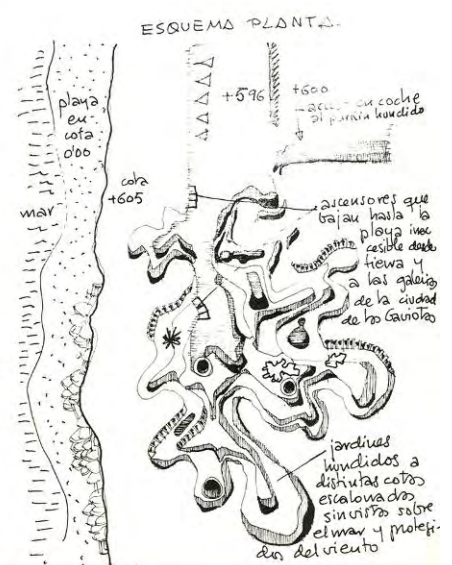 ESQUEMA PLANTA.
playa
en
cota
0'00
mar
cota
+605
+596
+600
acceso en coche
al parkin hundido
ascensores que
bajan hasta la
playa inac
cesible desde
tierra y
a las galerias
de la ciudad
de las Gaviotas
jardines
hundidos a
distintas cotas
escalonadas
sin vistas sobre
el mar y protegi-
dos del viento